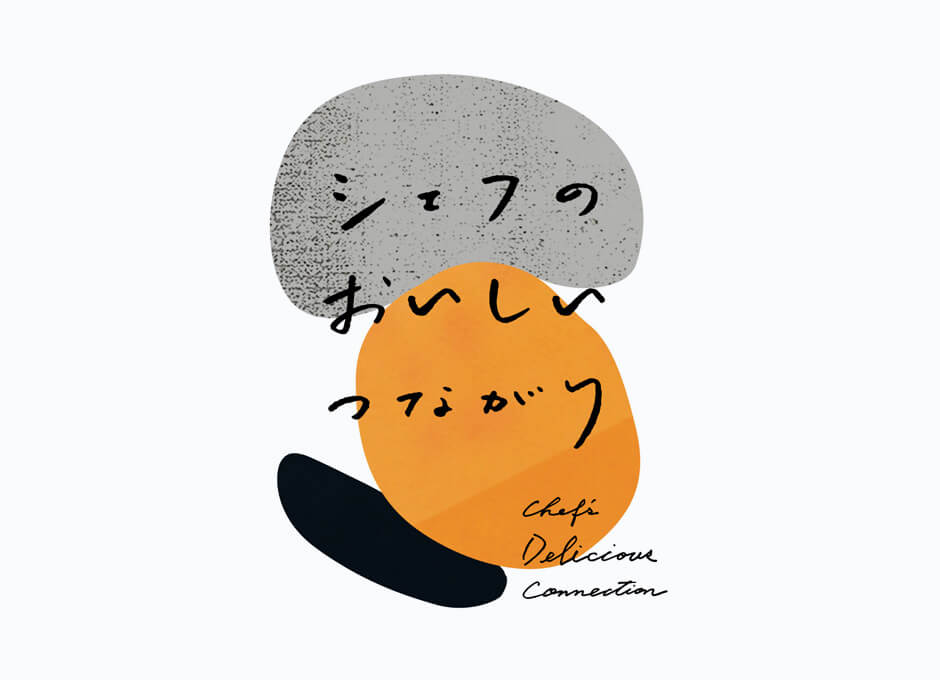 シェフの
おいしい
つながり
Chef's
Delicious
Connection